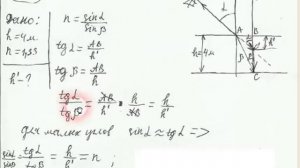 Дано:
h = 4м
n = 1,33
h' - ?
n = sinα / sinβ
tgα = AB / h'
tgβ = AB / h
tgα / tgβ = AB / h' · h / AB = h / h'
для малых углов sinα ≈ tgα =>
sinα / sinβ = h / h' = n ;
α
A
B
h'
h=4м
C